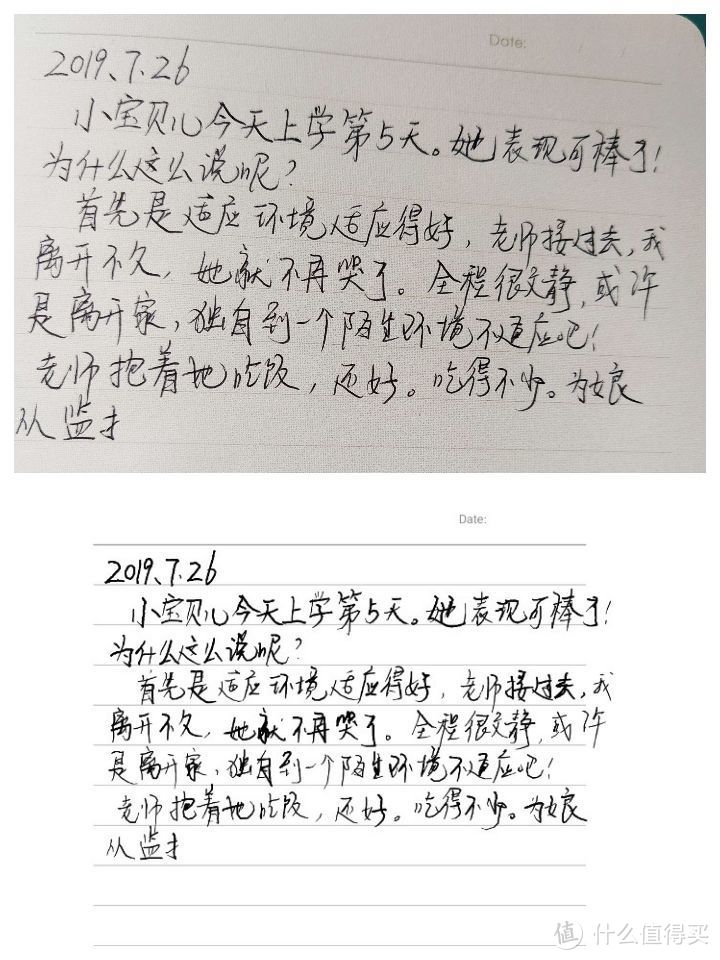 Date:
2019.7.26
小宝贝儿今天上学第5天。她表现可棒了!
为什么这么说呢?
首先是适应环境适应得好,老师接过去,我
离开不久,她就不再哭了。全程很文静,或许
是离开家,独自到一个陌生环境不适应吧!
老师抱着她吃饭,还好。吃得不少。为娘
从监才
Date:
2019.7.26
小宝贝儿今天上学第5天。她表现可棒了!
为什么这么说呢?
首先是适应环境适应得好,老师接过去,我
离开不久,她就不再哭了。全程很文静,或许
是离开家,独自到一个陌生环境不适应吧!
老师抱着她吃饭,还好。吃得不少。为娘
从监才
值 什么值得买